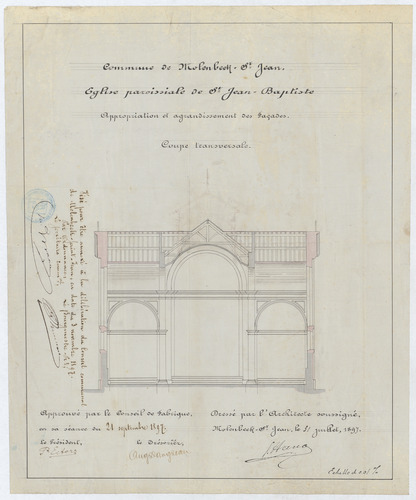 Commune de Molenbeek-St Jean.
Eglise paroissiale de St Jean-Baptiste
Appropriation et agrandissement des façades.
Coupe transversale.
Vu pour être annexé à la délibération du Conseil communal
de Molenbeek-Saint-Jean, en date du 3 novembre 1897.
Par ordonnance:
Le Secrétaire communal,
Le Bourgmestre,
Approuvé par le Conseil de Fabrique,
en sa séance du 21 septembre 1897.
Le Président,
Le Trésorier,
Dressé par l'Architecte soussigné,
Molenbeek-St Jean, le 31 juillet, 1897.
Echelle de